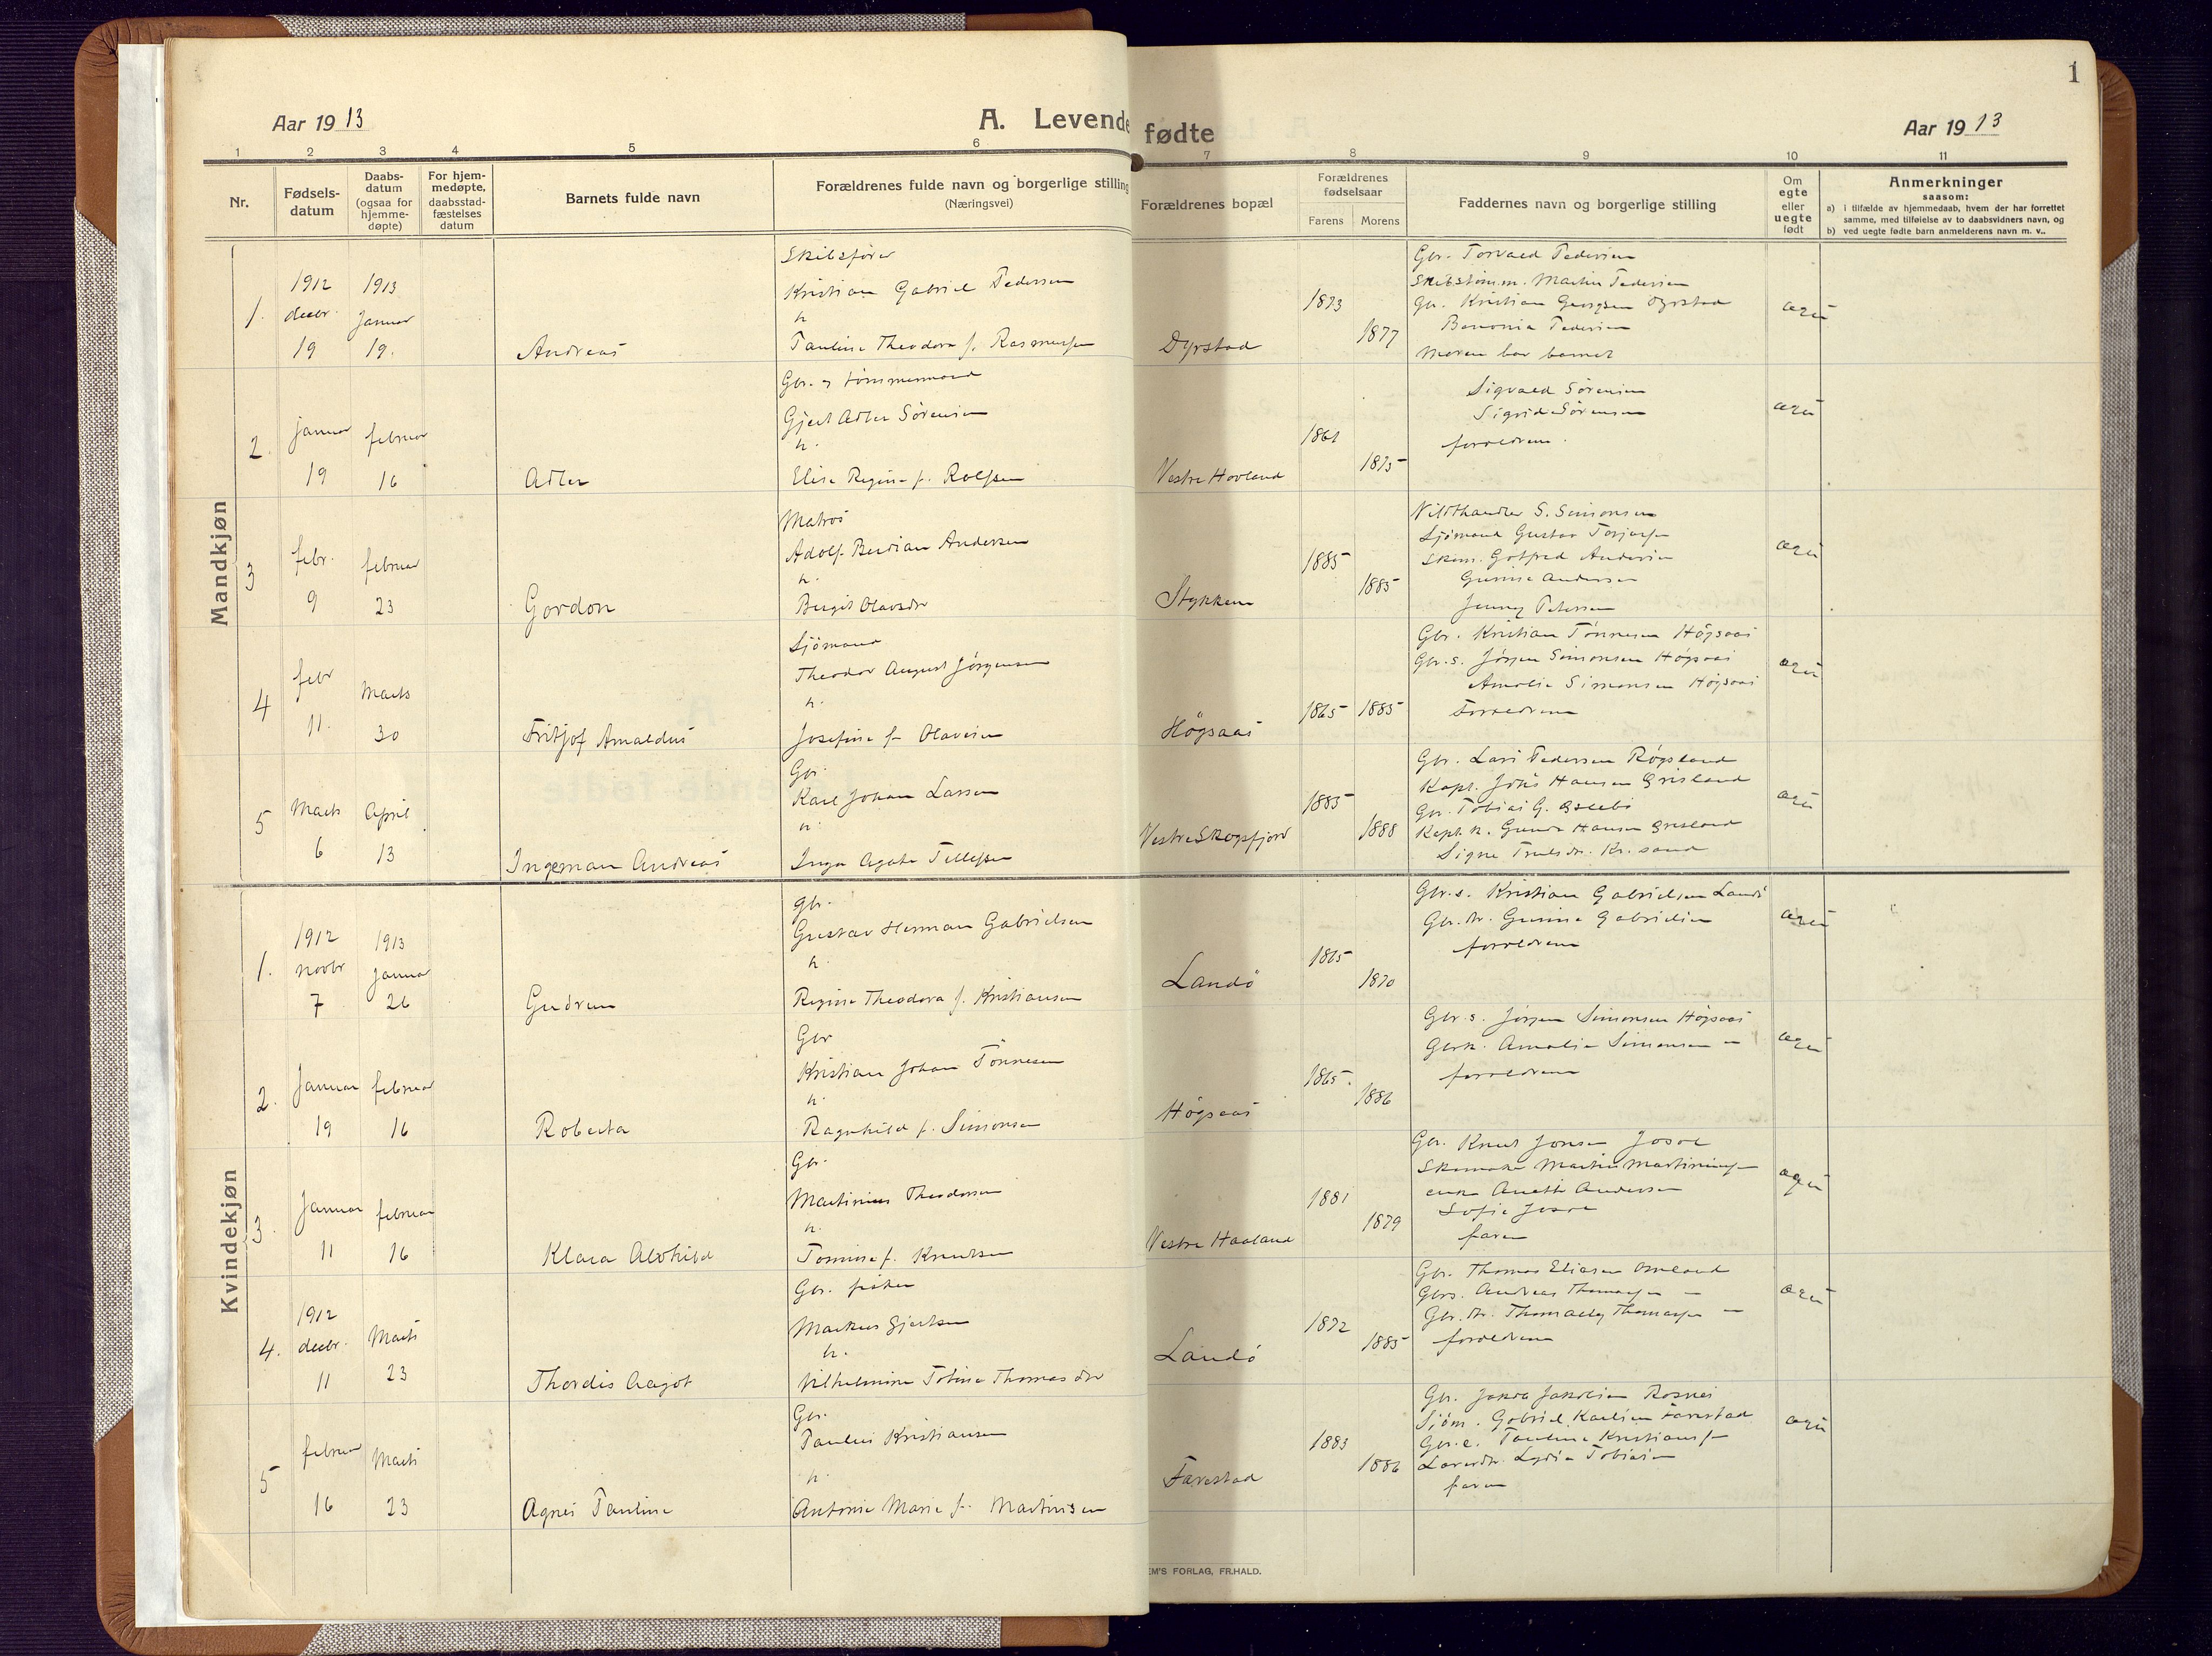 1
Aar 1913
A. Levende fødte
Aar 1913
1 2 3 4 5 6 7 8 9 10 11
Nr.
Fødsels-
datum
Daabs-
datum
(ogsaa for
hjemme-
døpte)
For hjem-
medøpte,
daabsstad-
fæstelses
datum
Barnets fulde navn
Forældrenes fulde navn og borgerlige stilling
(Næringsvei)
Forældrenes bopæl
Forældrenes
fødselsaar
Farens Morens
Faddernes navn og borgerlige stilling
Om
egte
eller
uegte
født
Anmerkninger
saasom:
a) i tilfælde av hjemmedaab, hvem der har forrettet
samme, med tilføielse av to daabsvidners navn, og
b) ved uegte fødte barn anmelderens navn m. v..
Mandkjøn
1.
1912
decbr.
19
1913
Januar
19.
Andreas
Skibsfører
Kristian Gabriel Pedersen
h
Pauline Theodora f. Rasmussen
Dyrstad
1873
1877
Gbr. Torvald Pedersen
Skibstømm. Martin Pedersen
Gbr. Kristian Georgsen Dyrstad
Benonia Pedersen
Moren bar barnet
egte
2.
januar
19
februar
16
Adler
Gbr. og tømmermand
Gjert Adler Sörensen
h.
Elise Regine f. Rolfsen
Vestre Hovland
1861
1875
Sigvald Sörensen
Sigrid Sörensen
foreldrene.
egte
3
febr.
9
februar
23
Gordon
Matros
Adolf Berdian Andersen
h.
Birgit Olavsdtr
Stokken
1885
1885
S. Simonsen
Sjömand Gustav Torjusen
Skom. Gotfred Andersen
Gunine Andersen
Jenny Petersen
egte
4
febr
11.
Marts
30
Fritjof Arnaldus
Sjömand
Theodor August Jörgensen
h.
Josefine f. Olavsen
Högsaas
1865 1885
Gbr. Kristian Tönnesen Högsaas
Gbr.s. Jörgen Simonsen Högsaas
Amalie Simonsen Högsaas
Foreldrene
egte
5
Marts
6
April
13
Ingeman Andreas
Gbr.
Karl Johan Larsen
h.
Inga Agate Tellefsen
Vestre Skogsfjord
1885
1888
Gbr. Lars Pedersen Røgsland
Kapt. Johs Hansen Grisland
Gbr. Tobias G.
Kapt. k. Gunda Hansen Grisland
Signe Trulsdtr. Kr.sand
egte
Kvindekjøn
1.
1912
novbr
7
1913
Januar
26
Gudrun
gbr.
Gustav Herman Gabrielsen
h.
Regine Theodora f. Kristiansen
Landö
1865
1870
Gbr.s. Kristian Gabrielsen Landö
Gbr.dtr. Gunine Gabrielsen
foreldrene
egte
2.
Januar
19
februar
16
Roberta
Gbr
Kristian Johan Tönnesen
h.
Ragnhild f. Simonsen
Högsaas
1865.
1886
Gbr.s. Jörgen Simonsen Högsaas
Gbrk. Amalie Simonsen –
foreldrene
egte
3
Januar
11
februar
16
Klara Alvhild
Gbr.
Martinius Theodorsen
h.
Tomine f. Knudsen
Vestre Haaland
1881
1879
Gbr. Knut Jonsen
Skomaker Martin Martinsen
enke Anette Andersen
Sofie
faren
egte
4.
1912
decbr.
11
Marts
23
Thordis Aagot
Gbr. fisker
Markus Gjertsen
h.
Vilhelmine Tobine Thomasdtr
Landö
1872
1885
Gbr. Thomas Eliasen
Gbrs. Andreas Thomassen –
Gbr.dtr. Thomassen –
foreldrene
egte
5
februar
16
Marts
23
Agnes Pauline
Gbr.
Paulus Kristiansen
h.
Antonie Marie f. Martinsen
Farestad
1883
1886
Gbr. Jakob Jakobsen Rosnes
Sjöm. Gabriel Karlsen Farestad
Gbr.e. Pauline Kristiansen
Lydia Tobiasen
faren
egte
EM'S FORLAG, FR.HALD.